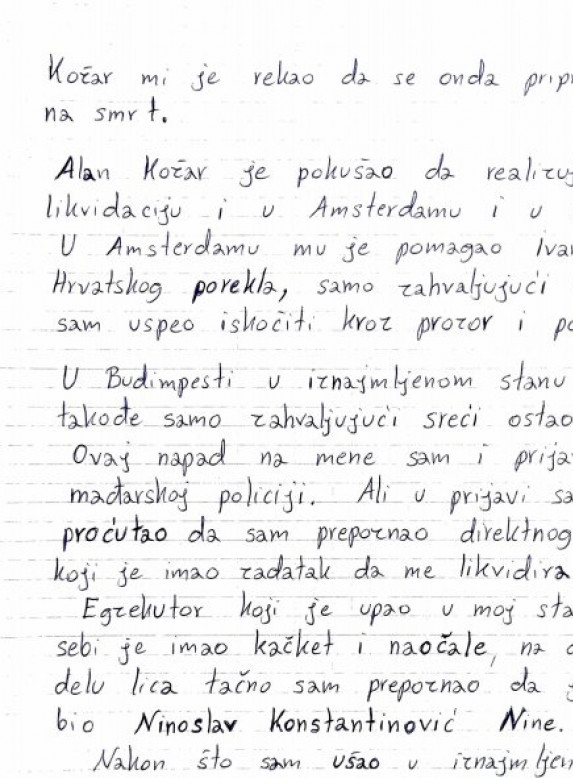 Kožar mi je rekao da se onda prip
na smrt.
Alan Kožar je pokušao da realizuj
likvidaciju i u Amsterdamu i u
U Amsterdamu mu je pomagao Ivan
Hrvatskog porekla, samo zahvaljujući
sam uspeo iskočiti kroz prozor i po
U Budimpesti u iznajmljenom stanu
takođe samo zahvaljujući sreći ostao
Ovaj napad na mene sam i prija
mađarskoj policiji. Ali u prijavi sa
proćutao da sam prepoznao direktnog
koji je imao zadatak da me likvidira
Egzekutor koji je upao u moj sta
sebi je imao kačket i naočale, na
delu lica tačno sam prepoznao da
bio Ninoslav Konstantinović Nine.
Nakon što sam ušao u iznajmljen